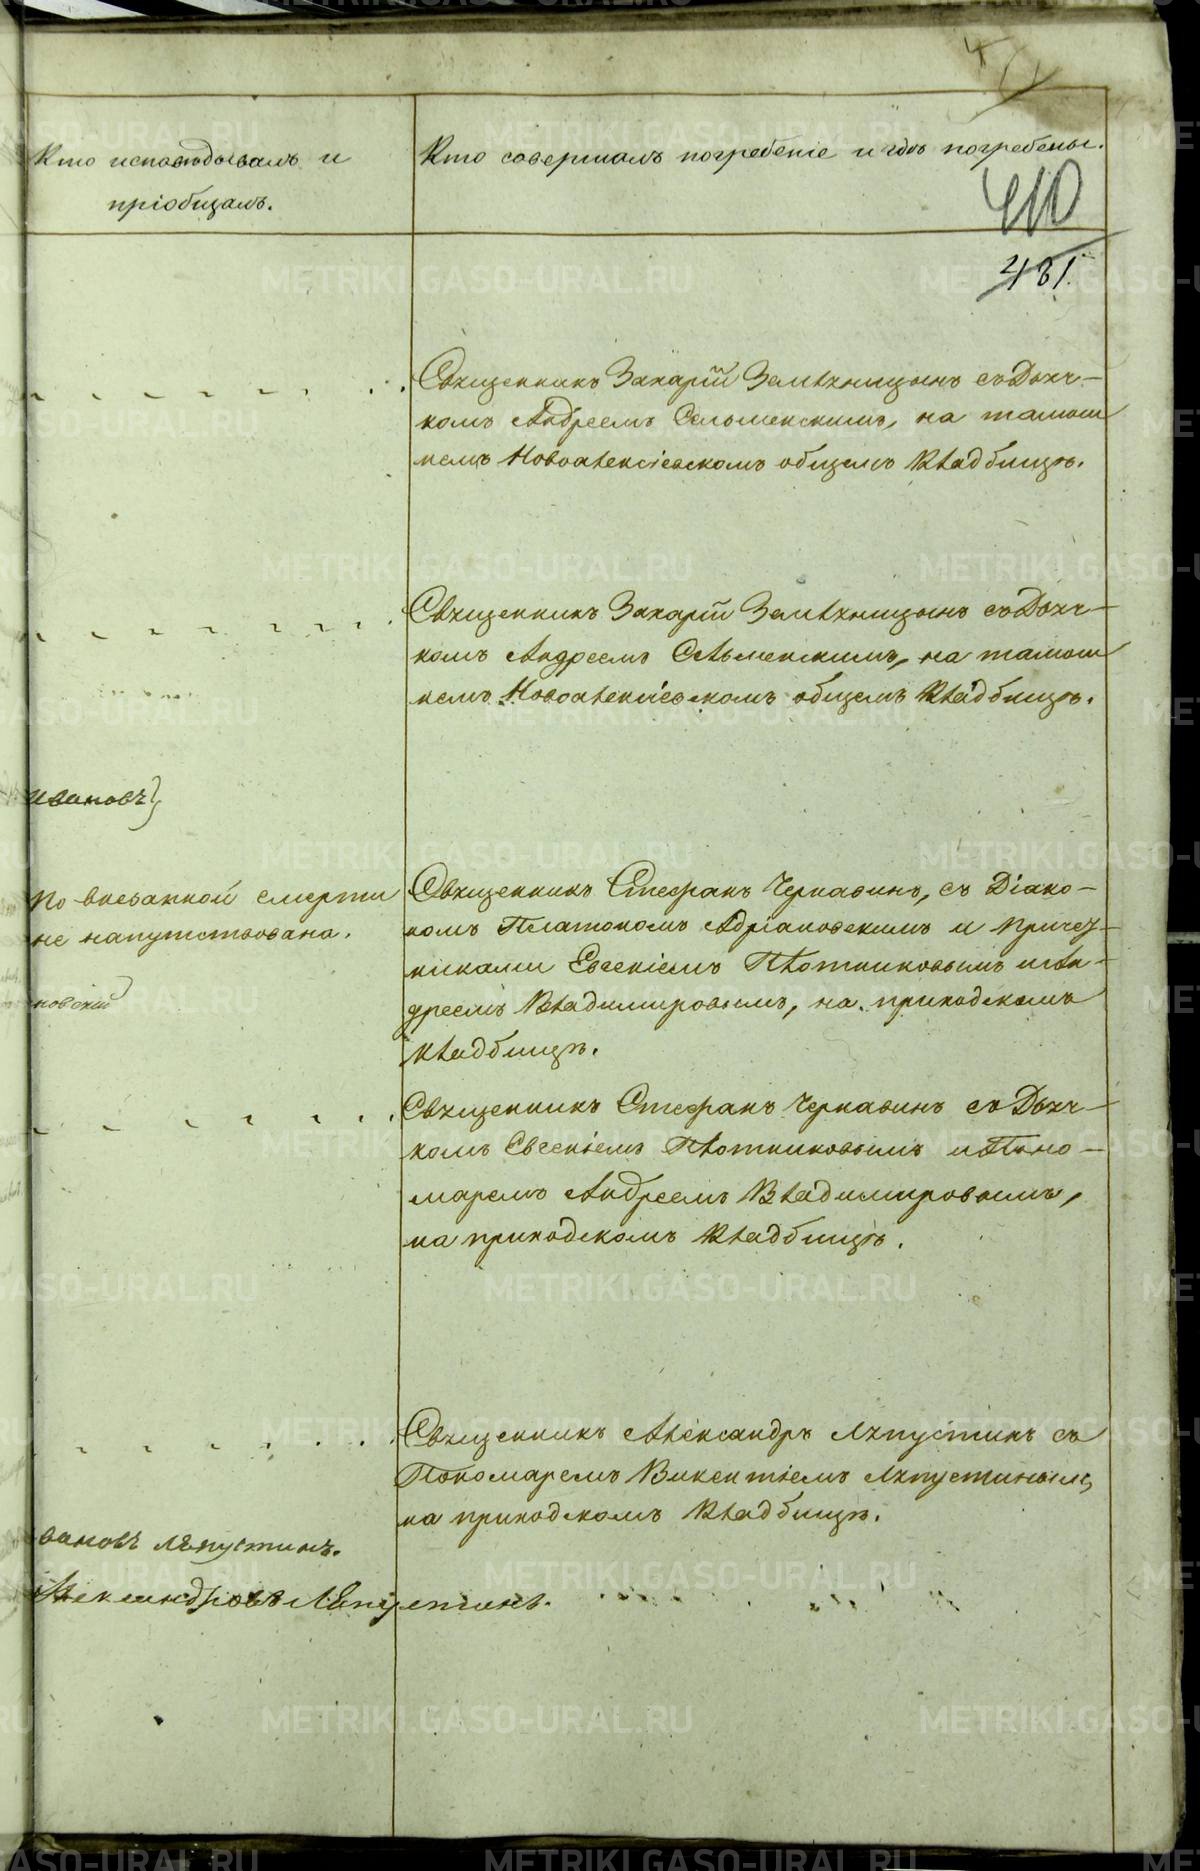 Кто исповѣдывалъ и
пріобщалъ.
Кто совершалъ погребеніе и гдѣ погребены.
410
431.
Священникъ Захарій Земляницынъ съ Дьяч-
комъ Андреемъ Сельменскимъ, на тамош
немъ Новоалексіевскомъ общемъ кладбищѣ.
Священникъ Захарій Земляницынъ съ Дьяч-
комъ Андреемъ Сельменскимъ, на тамош
немъ Новоалексіевскомъ общемъ кладбищѣ.
Ивановъ}
По внезапной смерти
не напутствована.
новскій
Священникъ Стефанъ Чернавинъ, съ Діако-
номъ Платономъ Адріановскимъ и причет-
никами Евгеніемъ Плотниковымъ и Ан-
дреемъ Владимировымъ, на приходскомъ
кладбищѣ.
Священникъ Стефанъ Чернавинъ съ Дьяч-
комъ Евгеніемъ Плотниковымъ и Поно-
маремъ Андреемъ Владимировымъ,
на приходскомъ кладбищѣ.
Священникъ Александръ Ляпустинъ съ
Пономаремъ Викентіемъ Ляпустинымъ,
на приходскомъ кладбищѣ.
вановъ Ляпустинъ.
Александровъ Ляпустинъ.
METRIKI.GASO-URAL.RU